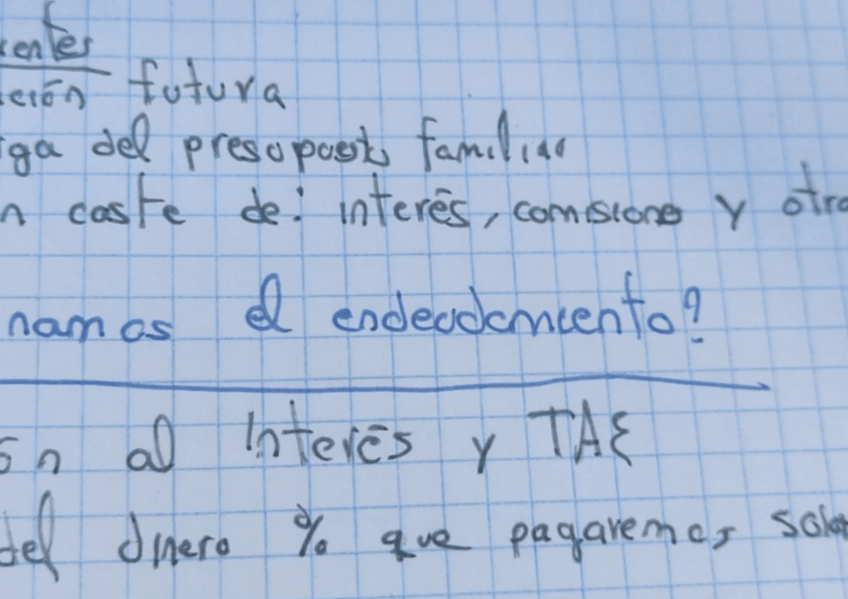 entes
ción futura
ga del presupost familiar
n coste de: interés, comisions y otro
namos el endeudamiento?
ón al Interés y TAE
del dinero % que pagaremos